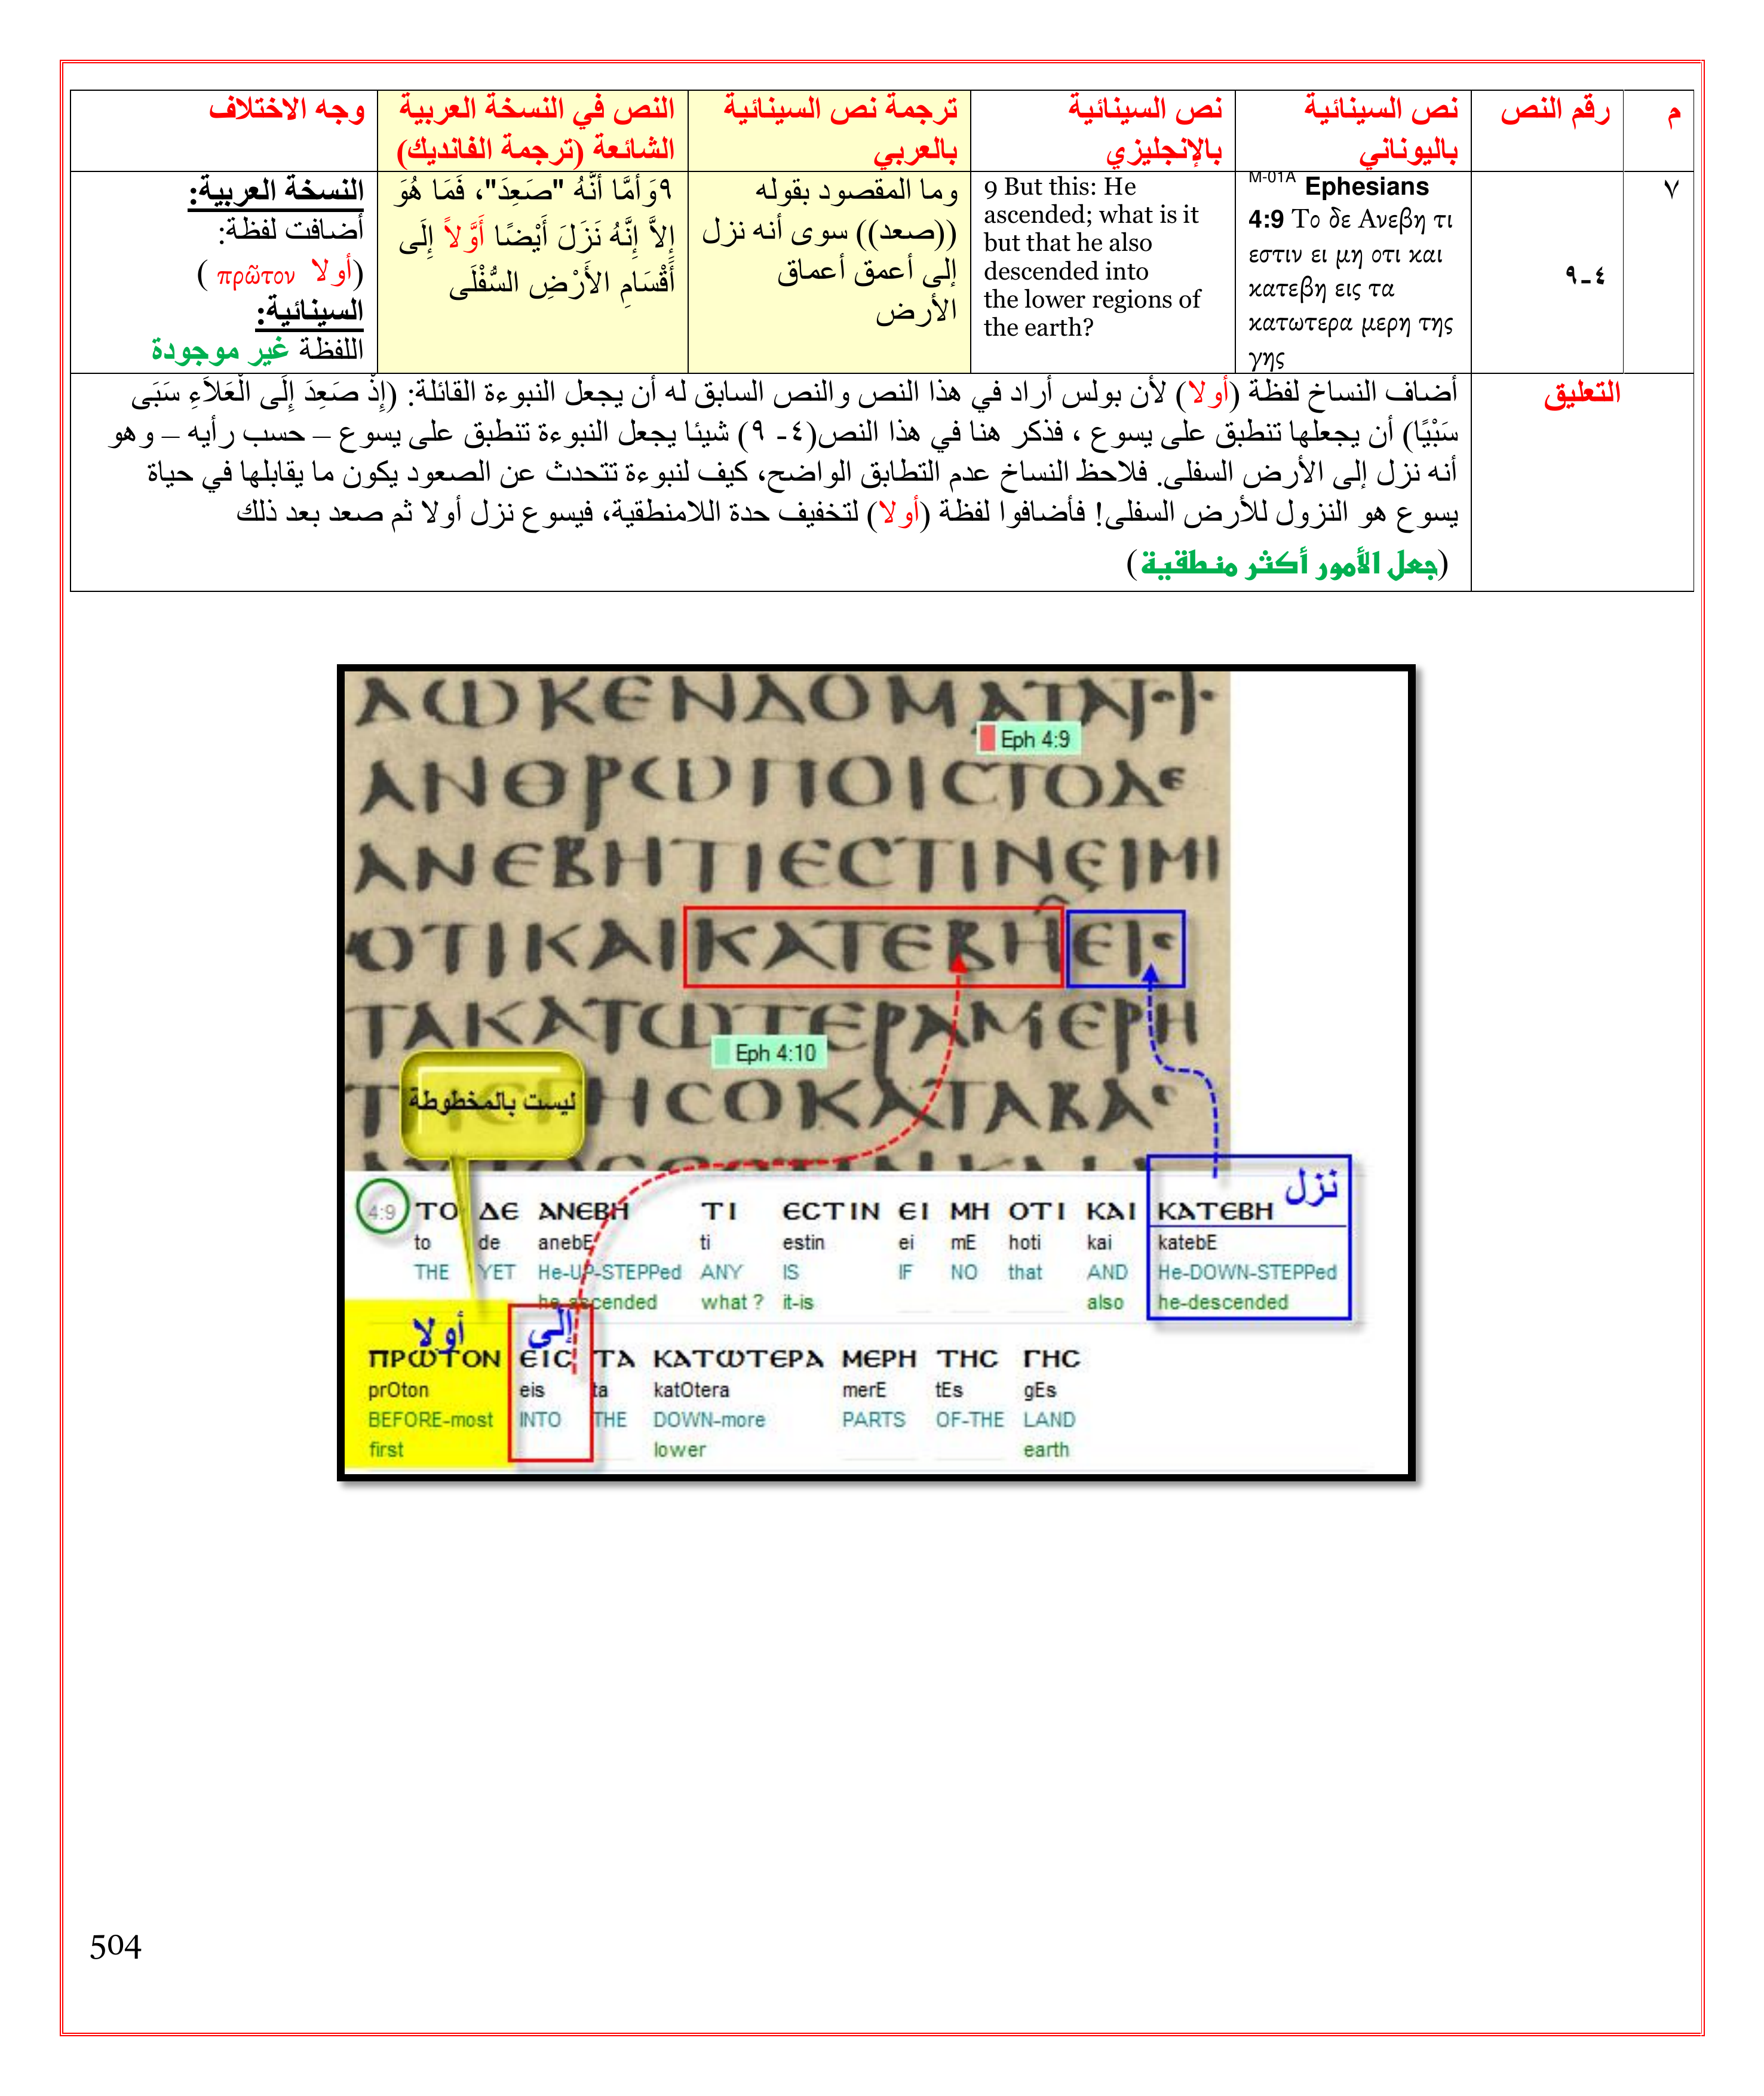 م
رقم النص
نص السينائية
باليوناني
نص السينائية
بالإنجليزي
ترجمة نص السينائية
بالعربي
النص في النسخة العربية
الشائعة (ترجمة الفانديك)
وجه الاختلاف
٧
٤-٩
M-01A Ephesians
4:9 Το δε Ανεβη τι
εστιν ει μη οτι και
κατεβη εις τα
κατωτερα μερη της
γης
9 But this: He
ascended; what is it
but that he also
descended into
the lower regions of
the earth?
وما المقصود بقوله
((صعد)) سوى أنه نزل
إلى أعمق أعماق
الأرض
٩وَأَمَّا أَنَّهُ "صَعِدَ"، فَمَا هُوَ
إِلاَّ إِنَّهُ نَزَلَ أَيْضًا أَوَّلاً إِلَى
أَقْسَامِ الأَرْضِ السُّفْلَى
النسخة العربية:
أضافت لفظة:
(أولا πρῶτον )
السينائية:
اللفظة غير موجودة
التعليق
أضاف النساخ لفظة (أولا) لأن بولس أراد في هذا النص والنص السابق له أن يجعل النبوءة القائلة: (إِذْ صَعِدَ إِلَى الْعَلاَءِ سَبَى
سَبْيًا) أن يجعلها تنطبق على يسوع ، فذكر هنا في هذا النص(٤- ٩) شيئا يجعل النبوءة تنطبق على يسوع – حسب رأيه – وهو
أنه نزل إلى الأرض السفلى. فلاحظ النساخ عدم التطابق الواضح، كيف لنبوءة تتحدث عن الصعود يكون ما يقابلها في حياة
يسوع هو النزول للأرض السفلى! فأضافوا لفظة (أولا) لتخفيف حدة اللامنطقية، فيسوع نزل أولا ثم صعد بعد ذلك
(جعل الأمور أكثر منطقية)
ΔΩΚΕΝΔΟΜΑΤΑ
Eph 4:9
ΑΝΘΡΩΠΟΙϹΤΟΔΕ
ΑΝΕΒΗΤΙΕϹΤΙΝΕΙΜΙ
ΟΤΙΚΑΙΚΑΤΕΒΗΕΙϹ
ΤΑΚΑΤΩΤΕΡΑΜΕΡΗ
Eph 4:10
ΗϹΟΚΑΤΑΒΑϹ
ليست بالمخطوطة
نزل
4:9 ΤΟ ΔΕ ΑΝΕΒΗ ΤΙ ΕϹΤΙΝ ΕΙ ΜΗ ΟΤΙ ΚΑΙ ΚΑΤΕΒΗ
to de anebE ti estin ei mE hoti kai katebE
THE YET He-UP-STEPPed ANY IS IF NO that AND He-DOWN-STEPPed
he-ascended what ? it-is also he-descended
أولا إلى
ΠΡΩΤΟΝ ΕΙϹ ΤΑ ΚΑΤΩΤΕΡΑ ΜΕΡΗ ΤΗϹ ΓΗϹ
prOton eis ta katOtera merE tEs gEs
BEFORE-most INTO THE DOWN-more PARTS OF-THE LAND
first lower earth
504